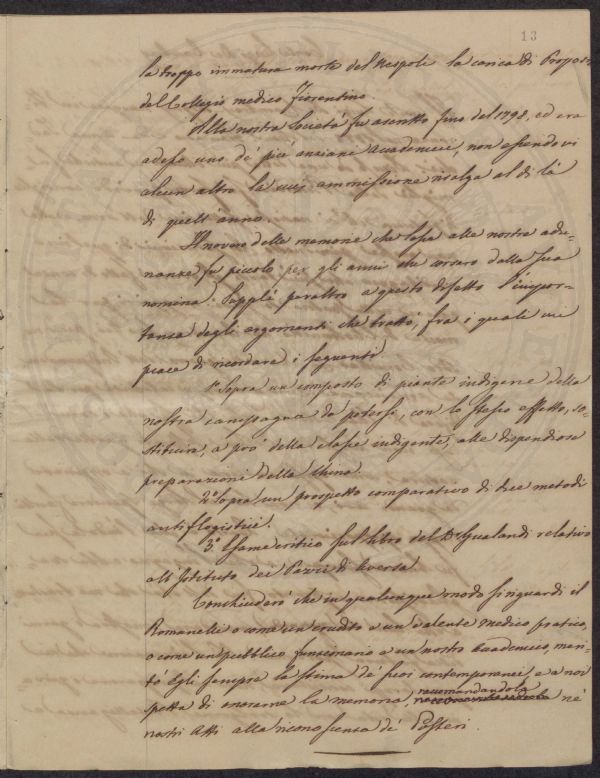 13
la troppo immatura morte del Nespoli la carica di Propos
del Collegio medico Fiorentino.
Alla nostra Società fu ascritto fino del 1798, ed era
adesso uno de' più anziani Accademici, non essendovi
alcun altro la cui ammissione risalga al di là
di quell'anno.
Il novero delle memorie che lesse alle nostre adu-
nanze fu piccolo per gli anni che corsero dalla sua
nomina. Supplì peraltro a questo difetto l'impor-
tanza degli argomenti che trattò, fra i quali mi
piace di ricordare i seguenti
1° Sopra un composto di piante indigene della
nostra campagna da potersi, con lo stesso effetto, so-
stituire, a prò della classe indigente, alle dispendiose
preparazioni della China.
2° Sopra un prospetto comparativo di due metodi
antiflogistici.
3° Esame critico sul libro del Dr Gualandi relativo
all'Istituto dei Pazzi di Aversa.
Conchiuderò che in qualunque modo si riguardi il
Romanelli o come un erudito e un valente medico pratico,
o come un pubblico funzionario e un nostro Accademico, meri-
tò Egli sempre la stima de' suoi contemporanei, e a noi
spetta di onorarne la memoria, raccomandandola ne'
nostri Atti alla riconoscenza de' Posteri.